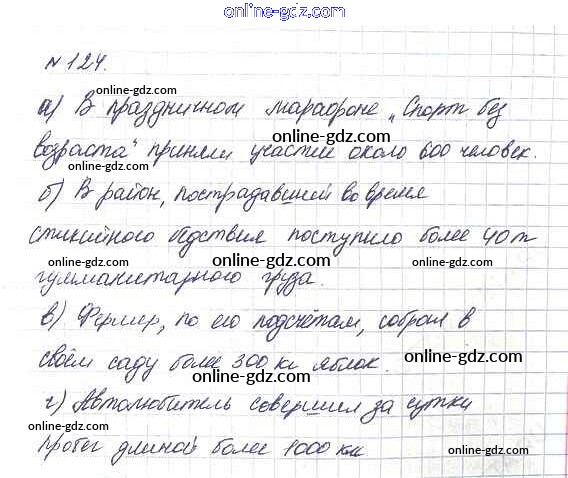 online-gdz.com
№124.
online-gdz.com
а) В праздничном марафоне „Спорт без
online-gdz.com
возраста" приняли участие около 600 человек.
online-gdz.com
б) В район, пострадавший во время
online-gdz.com
стихийного бедствия поступило более 40 т
online-gdz.com
гумманитарного груза.
online-gdz.com
в) Фермер, по его подсчётам, собрал в
online-gdz.com
своём саду более 300 кг яблок.
online-gdz.com
г) Автолюбитель совершил за сутки
online-gdz.com
пробег длиной более 1000 км
online-gdz.com